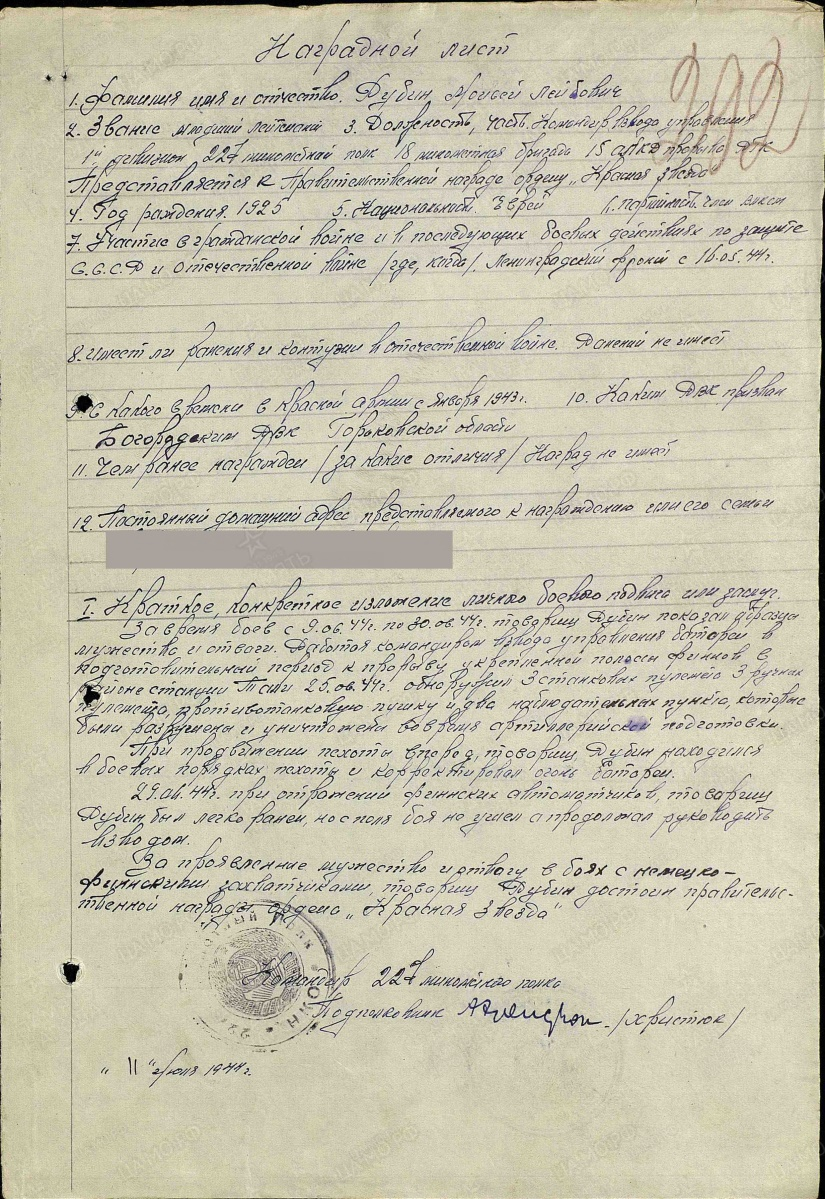 Наградной лист
392
1. Фамилия имя и отчество. Дубин Моисей Лейбович
2. Звание младший лейтенант 3. Должность, часть. Командир взвода управления
1й дивизион 227 минометный полк 18 минометная бригада 15 АПКД прорыва РГК
Представляется к Правительственной награде ордену „Красная звезда"
4. Год рождения. 1925 5. Национальность Еврей 6. партийность член ВЛКСМ
7. Участие в гражданской войне и в последующих боевых действиях по защите
С.С.С.Р и отечественной войне /где, когда/. Ленинградский фронт с 16.05.44г.
8. имеет ли ранения и контузии в отечественной войне. Ранений не имеет
9. С какого времени в Красной армии с января 1943г. 10. Каким РВК призван
Богородским РВК Горьковской области
11. Чем ранее награжден /за какие отличия/ Наград не имеет
12. Постоянный домашний адрес представляемого к награждению или его семьи
I. Краткое, конкретное изложение личного боевого подвига или заслуг.
За время боев с 9.06.44г. по 30.06.44г. товарищ Дубин показал образцы
мужества и отваги. Работая командиром взвода управления батареи в
подготовительный период к прорыву укрепленной полосы финнов в
районе станции Тали 25.06.44г. обнаружил 3 станковых пулемета 3 ручных
пулемета, противотанковую пушку и два наблюдательных пункта, которые
были разрушены и уничтожены во время артиллерийской подготовки.
При продвижении пехоты вперед, товарищ Дубин находился
в боевых порядках пехоты и корректировал огонь батареи.
29.06.44г. при отражении финнских автоматчиков, товарищ
Дубин был легко ранен, но с поля боя не ушел а продолжал руководить
взводом.
За проявленние мужество и отвагу в боях с немецко-
финнскими захватчиками, товарищ Дубин достоин правительс-
ственной награды ордена „Красная звезда"
Командир 227 минометного полка
Подполковник /Христюк/
„11" июля 1944г.